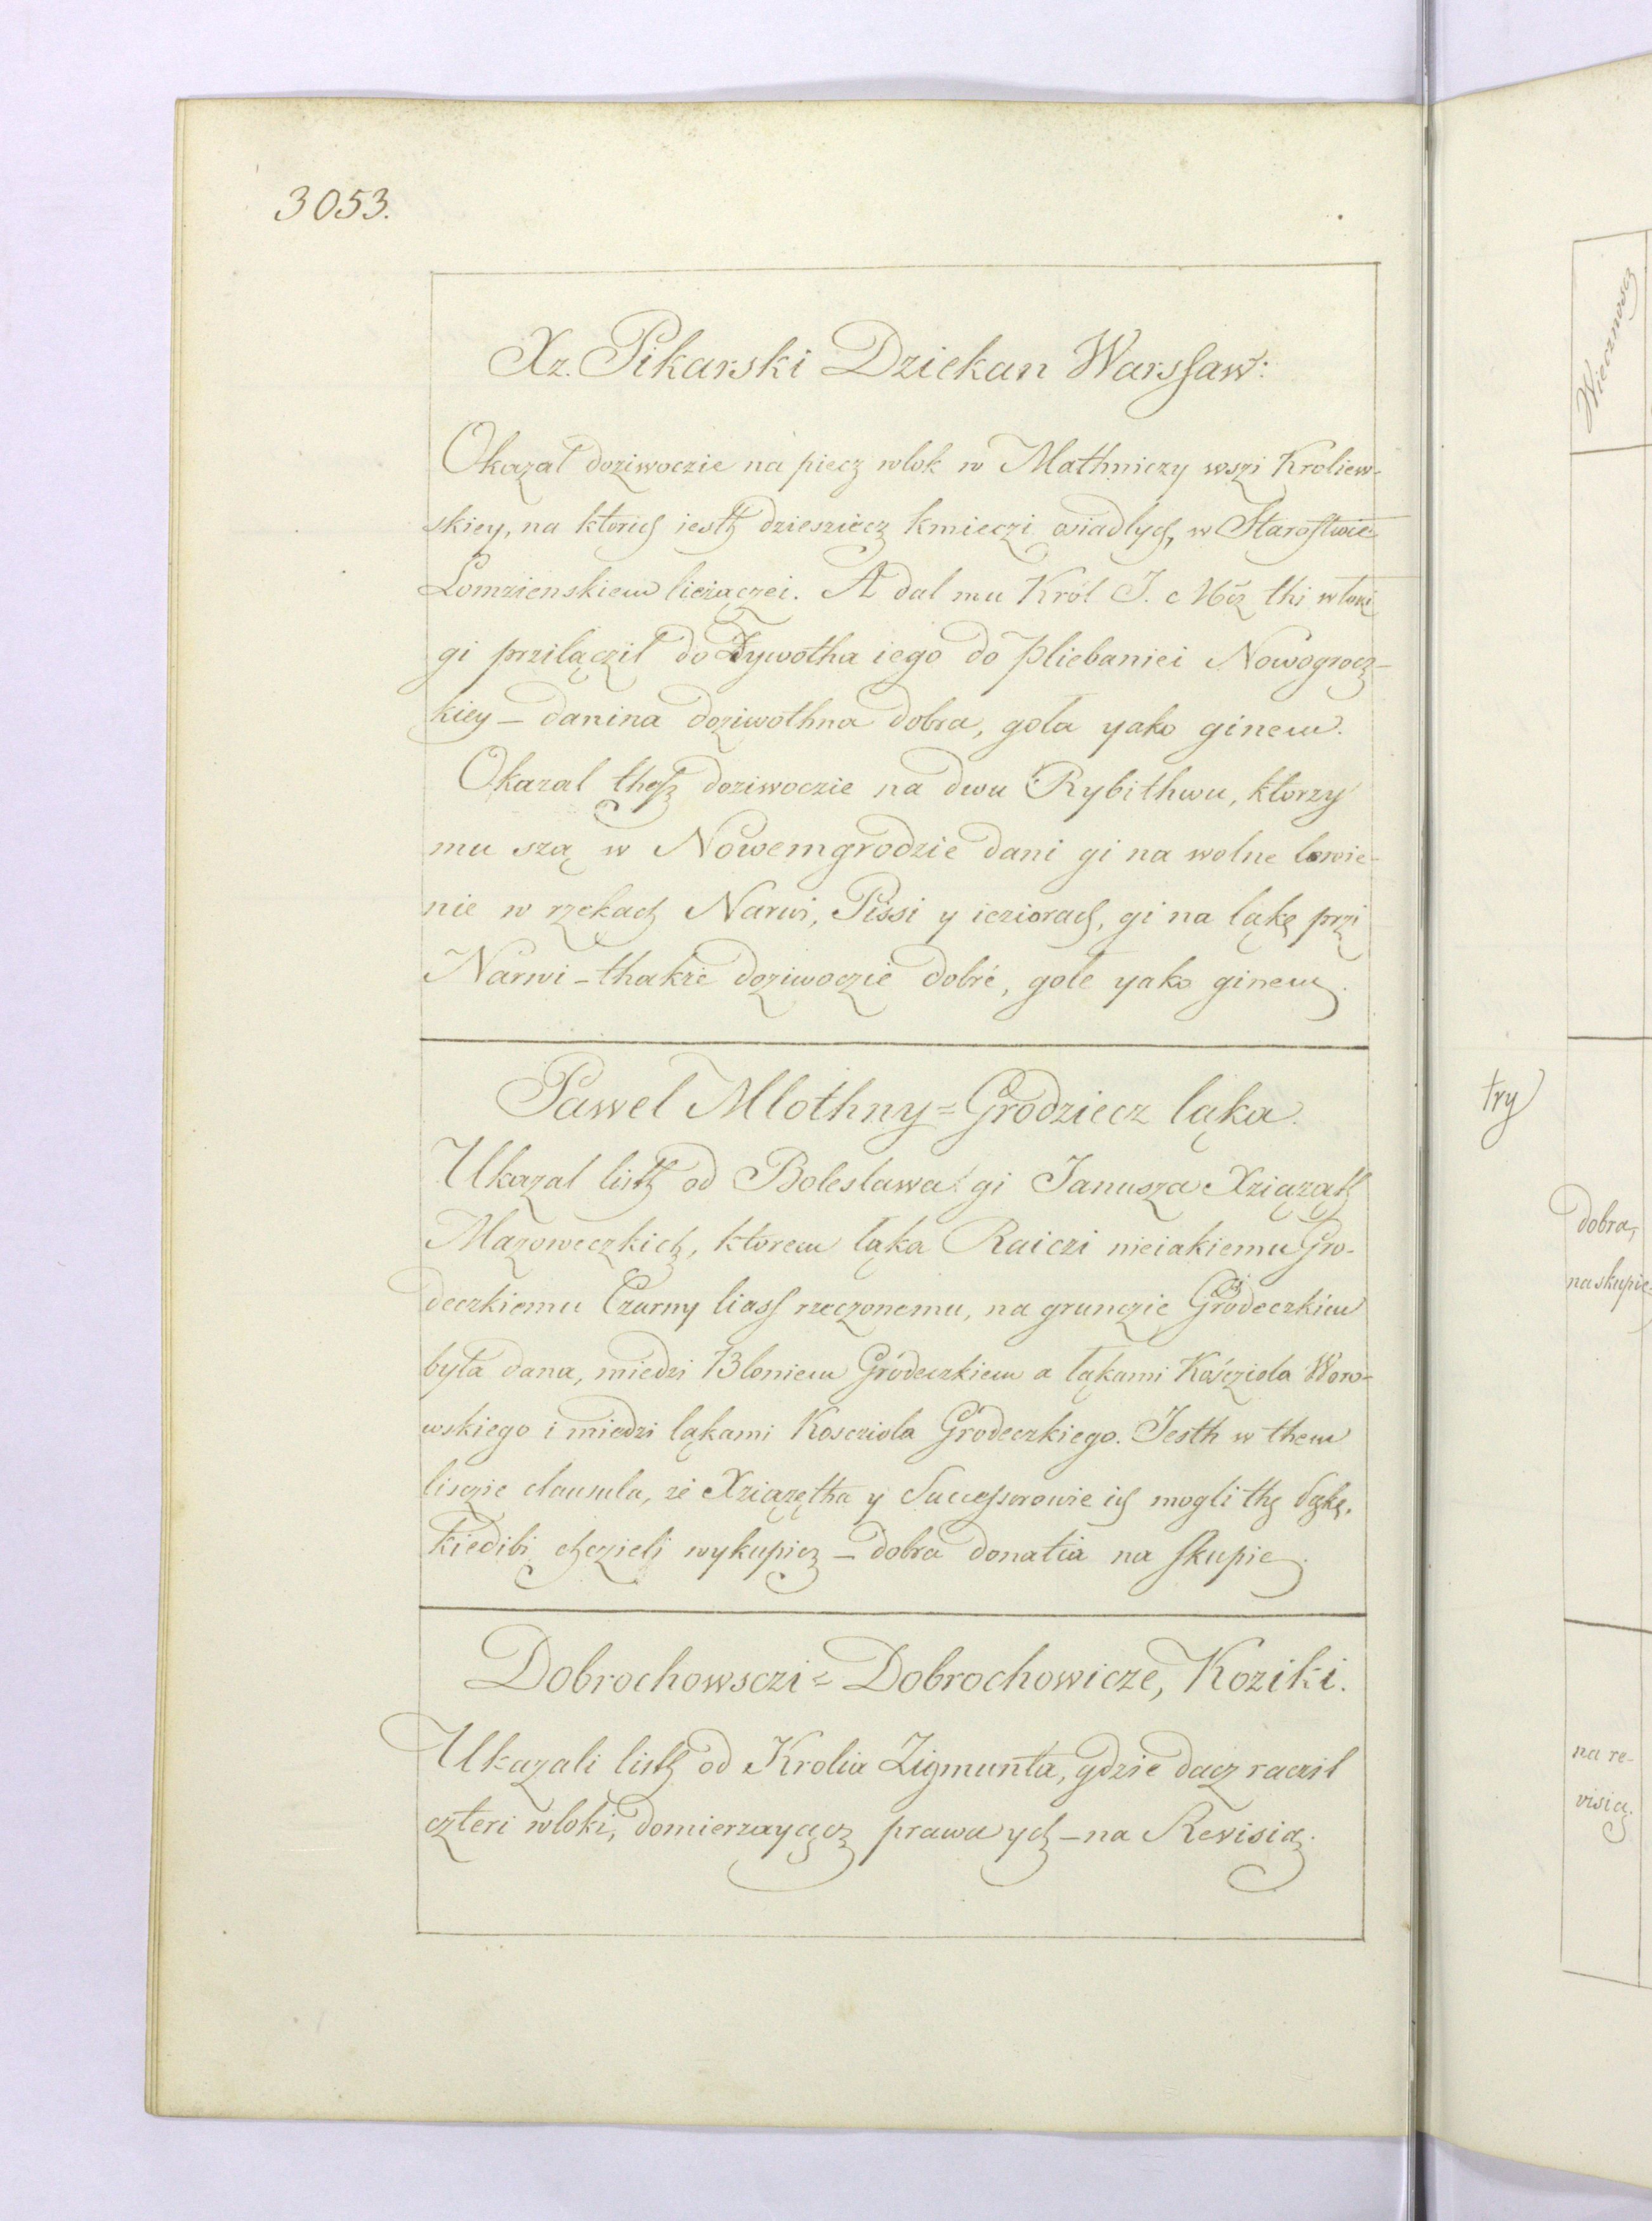 3053.
Xz. Pikarski Dziekan Warsſaw:
Okazal doziwoczie na piecz wlok w Mathniczy wszi Kroliew-
skiey, na ktorich iesth dzieszięcz kmieczi osiadlych, w Staroſtwie
Lomzienskiem liezączei. A dal mu Król J. Mcz thi wloki
gi przilączil do Zywotha iego do pliebaniei Nowogrocz-
kiey – danina doziwothna dobra, gola yako ginem.
Okazal thesz doziwoczie na dwu Rybithwu, ktorzy
mu szą w Nowemgrodzie dani gi na wolne lowie-
nie w rzekach Narwi, Pissi y ieziorach, gi na ląkę przi
Narwi – thakze doziwoczie dobré, gole yako ginem.
Pawel Mlothny = Grodziecz ląka.
Ukazal listh od Boleslawa gi Janusza Xziążąth
Mazoweczkich, ktorem ląka Raiczi nieiakiemu Gro-
deczkiemu Czarny liasſ rzeczonemu, na grunczie Grodeczkim
była dana, miedzi Bloniem Gródeczkiem a ląkami Kościola Woro-
wskiego i miedzi ląkami Koscziola Grodeczkiego. Jesth w them
lisczie clausula, ze Xziązętha y Succeſsorowie ich mogli thę łąkę,
kiedibi chczieli wykupicz – dobra donatia na ſkupie.
Dobrochowsczi = Dobrochowicze, Koziki.
Ukazali listh od Krolia Zigmunta, gdzie dacz raczil
czteri wloki, domierzayącz prawa ych – na Revisią.
Wiecznoscz
try
dobra,
na skupie
na re-
visią.